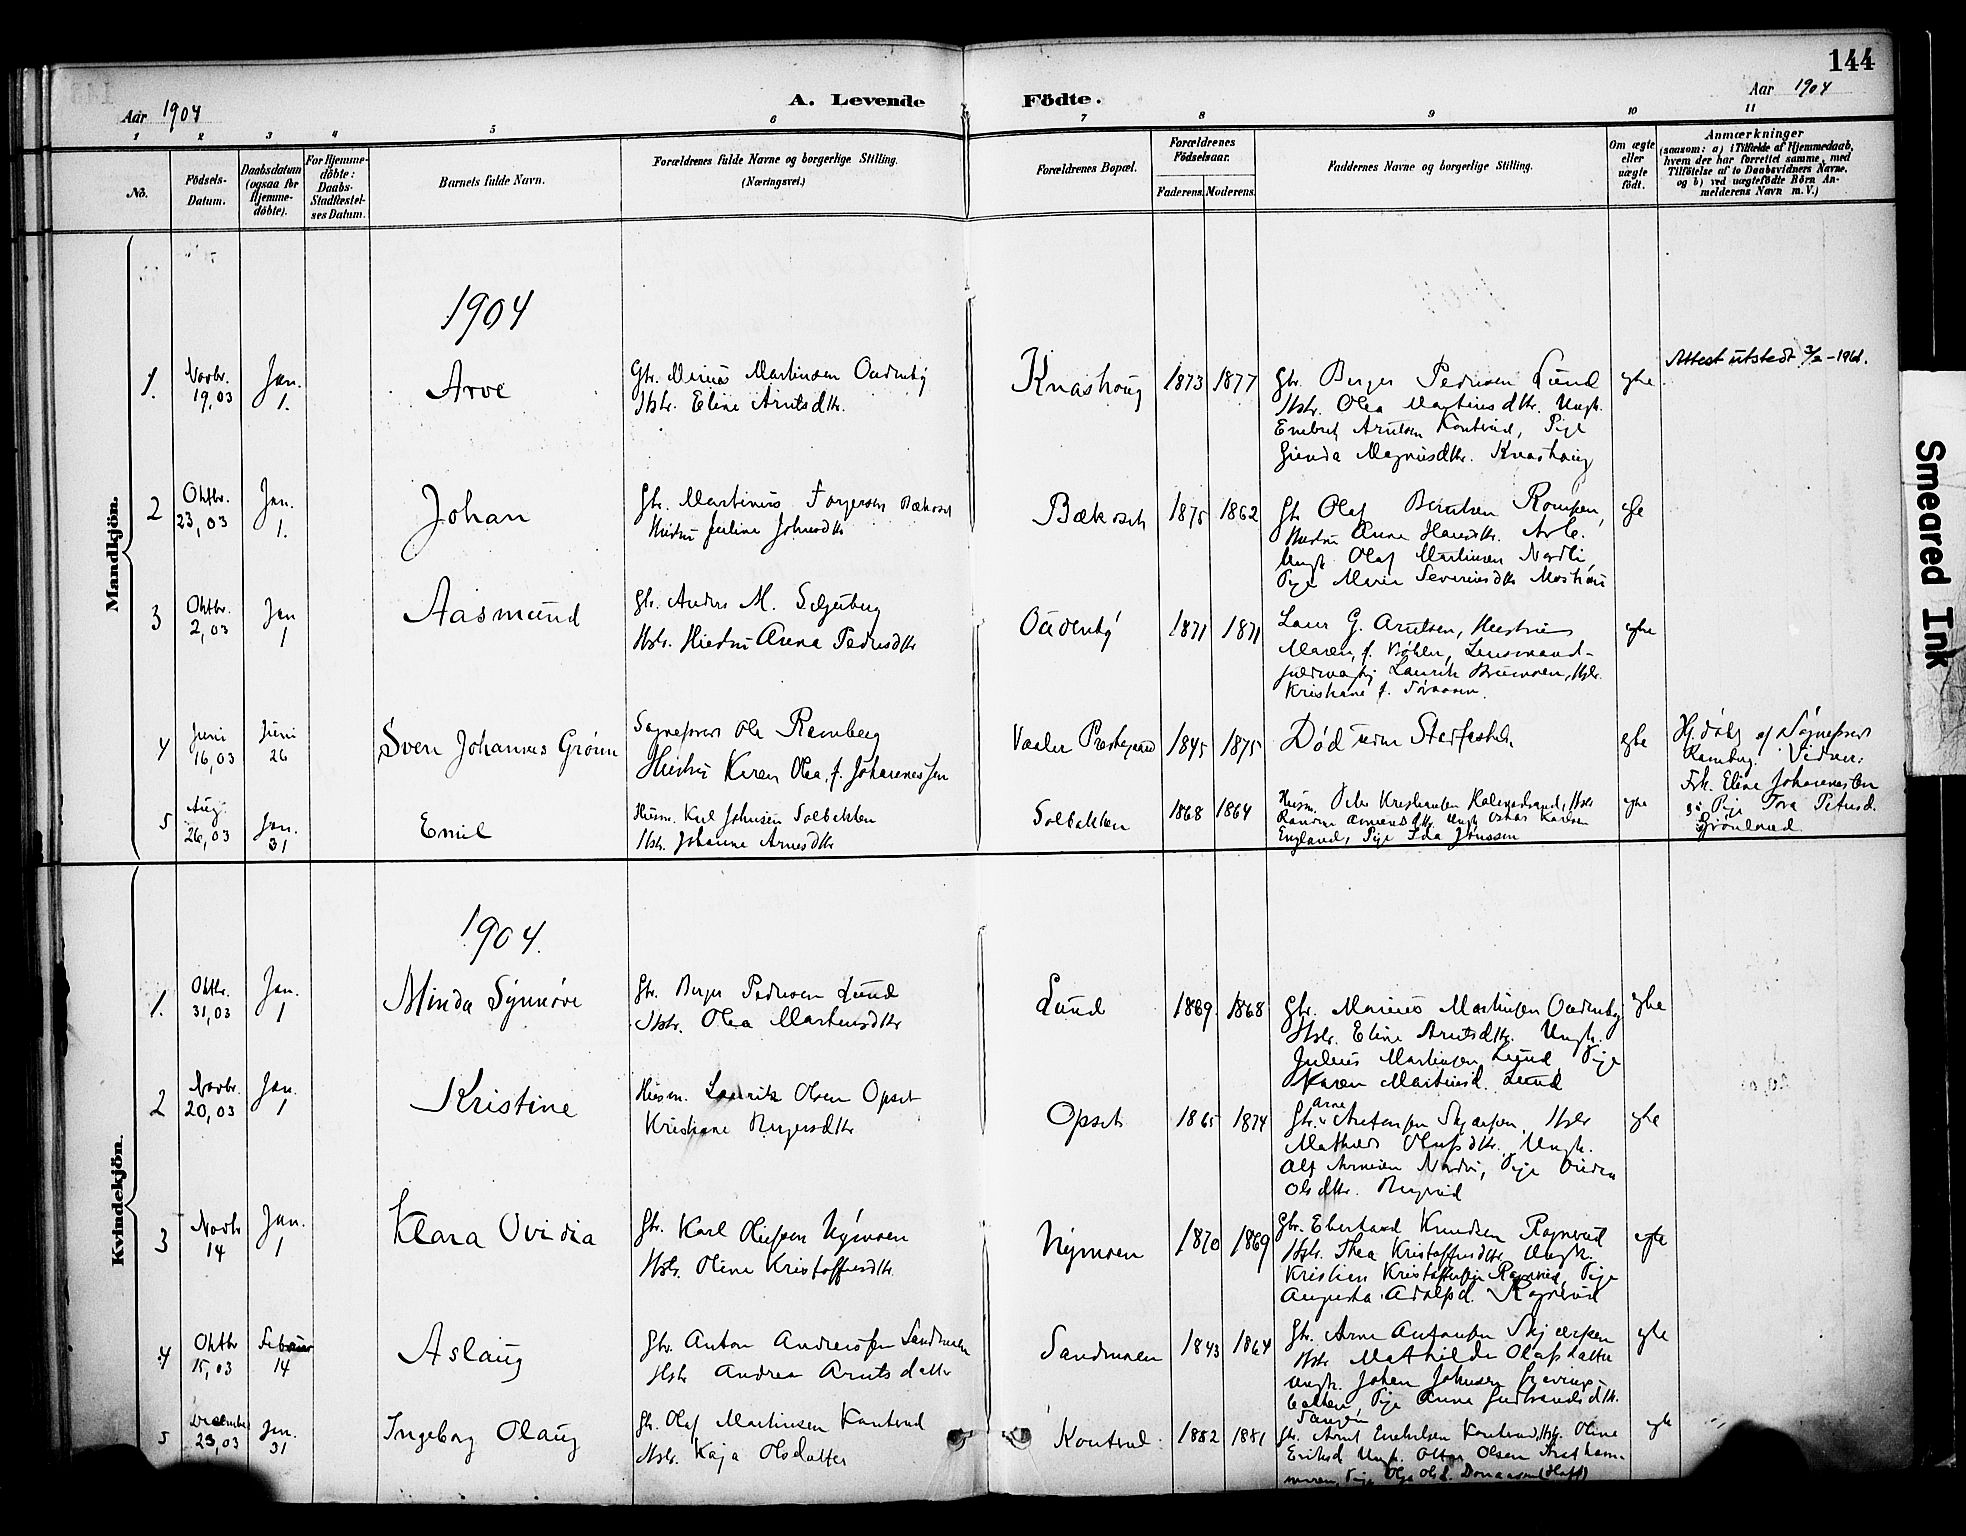 144
Aar 1904
A. Levende Födte.
Aar 1904
1 2 3 4 5 6 7 8 9 10 11
No.
Födsels-
Datum.
Daabsdatum
(ogsaa for
Hjemme-
döbte).
For Hjemme-
döbte:
Daabs-
Stadfæstel-
ses Datum.
Barnets fulde Navn.
Forældrenes fulde Navne og borgerlige Stilling.
(Næringsvei.)
Forældrenes Bopæl.
Forældrenes
Födselsaar.
Faderens. Moderens.
Faddernes Navne og borgerlige Stilling.
Om ægte
eller
uægte
födt.
Anmærkninger
(saasom: a) i Tilfælde af Hjemmedaab,
hvem der har forrettet samme, med
Tilföielse af to Daabsvidners Navne.
og b) ved uægtefödte Börn An-
melderens Navn m. V.)
Mandkjön.
1904
1. Novbr. 19,03
Jan. 1.
Arve
Gbr. Martinsen Oudenby
Hstr. Eline Arntsdtr.
Knashoug
1873 1877
Gbr. Berger Pedersen Lund
Hstr. Olea Martinsdtr. Ungk.
Enebret Arntsen Kontrud, Pige
Magnusdtr. Knashoug
egte
Attest utstedt 3/2-1961.
2 Oktbr. 23,03
Jan. 1.
Johan
Gbr. Martinus Bækoset
Hustru Juline Johnsdtr
Bækoset
1875 1862
Gbr Olaf Berntsen
Hustru Anne Hansdtr.
Ungk. Olaf Martinsen Nordli,
Pige Marie Severinsdtr
egte
3 Oktbr. 2,03
Jan 1
Aasmund
Gbr. Anders M.
Hstr. Hustru Anna Pedersdtr
Oudenby
1871 1871
Laur G. Arntsen, Hustru
Maren, f. Lensmand-
Laurits Hstr.
Kristiane f.
egte
4 Juni 16,03
Juni 26
Sven Johannes Grönn
Sogneprest Ole Ramberg
Hustru Karen Olea, f. Johannessen
Vaaler Prestegaard
1845 1875
Död uden Stadfestelse
egte
Hj.döbt af Sogneprest
Ramberg. Vidner:
Frk. Eline Johannessen
Pige Tora Petersd.
Grönlund.
5 Aug. 26,03
Jan. 31
Emil
Husm. Karl Johnsen Solbakken
Hstr. Johanne Arnesdtr
Solbakken
1868 1864
Husm. Kristiansen Hstr
Ungk Oskar Karlsen
England, Pige Ida Jonssen
egte
Kvindekjön.
1904.
1. Oktbr. 31,03
Jan. 1
Minda Synnöve
Gbr. Berger Pedersen Lund
Hstr. Olea Martinsdtr
Lund
1869 1868
Gbr. Martinsen Oudenby
Hstr. Eline Arntsdtr. Ungk.
Julius Martinsen Lund, Pige
Karen Martinsd. Lund
egte
2 Novbr. 20,03
Jan. 1
Kristine
Husm. Lauritz Olsen Opset
Kristiane Bergersdtr
Opset
1865 1874
Arne
Gbr. Antonsen Skjærpen, Hstr
Mathilde Olafsdtr. Ungk.
Alf Pige
Olsdtr.
egte
3 Novbr 14
Jan. 1
Klara Ovidia
Gbr. Karl Olufsen Nymoen
Hstr. Oline Kristoffersdtr.
Nymoen
1870 1869
Gbr. Eberhard Knudsen Rognerud
Hstr. Thea Kristoffersdtr, Ungk.
Kristian Kristoffersen Rognerud, Pige
Augusta Adolfsd. Rognerud
egte
4 Oktbr 15,03
Februar 14
Aslaug
Gbr. Anton Anderssen Sandmoen
Hstr Andrea Arntsdatter
Sandmoen
1843 1864
Gbr. Arne Antonsen Skjærpen
Hstr Mathilde Olafsdatter
Ungk. Johan Johnsen
Pige Anna Gudbrandsdtr.
egte
5 December 23,03
Jan. 31
Ingeborg Olaug
Gbr. Olaf Martinsen Kontrud
Hstr. Kaja Olsdatter
Kontrud.
1882 1881
Gbr. Arnt Enebretsen Kontrud, Hstr. Oline
Eriksd Ungk. Olsen
Pige Olga Olsd.
egte
Smeared Ink